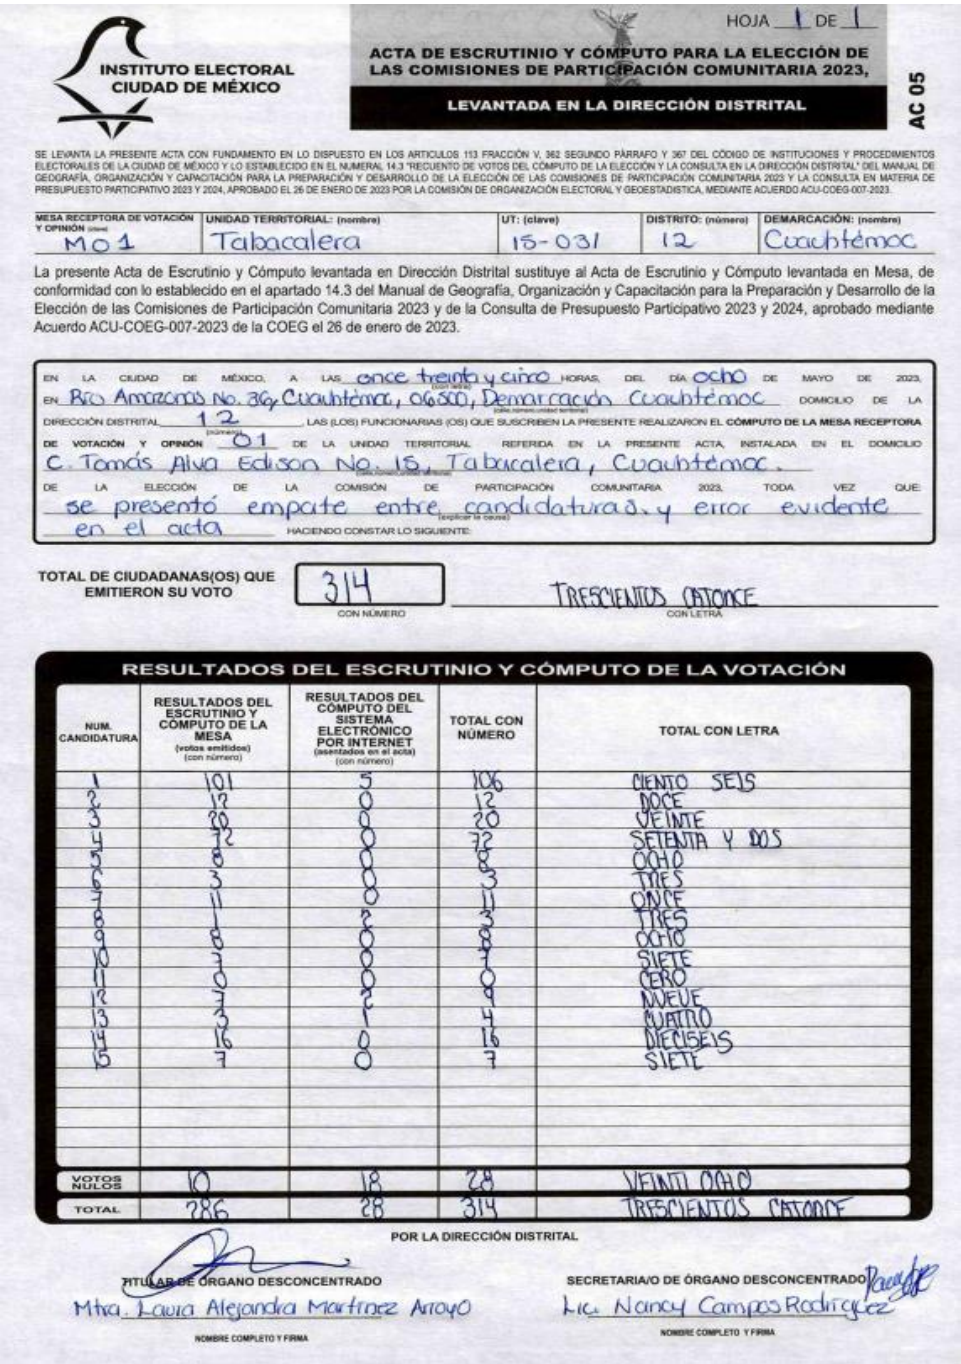 HOJA 1 DE 1
INSTITUTO ELECTORAL
CIUDAD DE MÉXICO
ACTA DE ESCRUTINIO Y CÓMPUTO PARA LA ELECCIÓN DE
LAS COMISIONES DE PARTICIPACIÓN COMUNITARIA 2023,
LEVANTADA EN LA DIRECCIÓN DISTRITAL
AC 05
SE LEVANTA LA PRESENTE ACTA CON FUNDAMENTO EN LO DISPUESTO EN LOS ARTICULOS 113 FRACCIÓN V, 362 SEGUNDO PÁRRAFO Y 367 DEL CÓDIGO DE INSTITUCIONES Y PROCEDIMIENTOS
ELECTORALES DE LA CIUDAD DE MÉXICO Y LO ESTABLECIDO EN EL NUMERAL 14.3 "RECUENTO DE VOTOS DEL CÓMPUTO DE LA ELECCIÓN Y LA CONSULTA EN LA DIRECCIÓN DISTRITAL" DEL MANUAL DE
GEOGRAFÍA, ORGANIZACIÓN Y CAPACITACIÓN PARA LA PREPARACIÓN Y DESARROLLO DE LA ELECCIÓN DE LAS COMISIONES DE PARTICIPACIÓN COMUNITARIA 2023 Y LA CONSULTA EN MATERIA DE
PRESUPUESTO PARTICIPATIVO 2023 Y 2024, APROBADO EL 26 DE ENERO DE 2023 POR LA COMISIÓN DE ORGANIZACIÓN ELECTORAL Y GEOESTADISTICA, MEDIANTE ACUERDO ACU-COEG-007-2023.
MESA RECEPTORA DE VOTACIÓN Y OPINIÓN (clave) UNIDAD TERRITORIAL: (nombre) UT: (clave) DISTRITO: (número) DEMARCACIÓN: (nombre)
M01 Tabacalera 15-031 12 Cuauhtémoc
La presente Acta de Escrutinio y Cómputo levantada en Dirección Distrital sustituye al Acta de Escrutinio y Cómputo levantada en Mesa, de
conformidad con lo establecido en el apartado 14.3 del Manual de Geografía, Organización y Capacitación para la Preparación y Desarrollo de la
Elección de las Comisiones de Participación Comunitaria 2023 y de la Consulta de Presupuesto Participativo 2023 y 2024, aprobado mediante
Acuerdo ACU-COEG-007-2023 de la COEG el 26 de enero de 2023.
EN LA CIUDAD DE MÉXICO, A LAS once treinta y cinco HORAS, DEL DÍA ocho DE MAYO DE 2023,
(con letra)
EN Río Amazonas No. 36, Cuauhtémoc, 06500, Demarcación Cuauhtémoc DOMICILIO DE LA
(calle, número, unidad territorial)
DIRECCIÓN DISTRITAL 12, LAS (LOS) FUNCIONARIAS (OS) QUE SUSCRIBEN LA PRESENTE REALIZARON EL CÓMPUTO DE LA MESA RECEPTORA
(número)
DE VOTACIÓN Y OPINIÓN 01 DE LA UNIDAD TERRITORIAL REFERIDA EN LA PRESENTE ACTA, INSTALADA EN EL DOMICILIO
C. Tomás Alva Edison No. 15, Tabacalera, Cuauhtémoc.
(calle, número, unidad territorial)
DE LA ELECCIÓN DE LA COMISIÓN DE PARTICIPACIÓN COMUNITARIA 2023, TODA VEZ QUE:
se presentó empate entre candidaturas. y error evidente
(explicar la causa)
en el acta HACIENDO CONSTAR LO SIGUIENTE:
TOTAL DE CIUDADANAS(OS) QUE
EMITIERON SU VOTO 314 TRESCIENTOS CATORCE
CON NÚMERO CON LETRA
RESULTADOS DEL ESCRUTINIO Y CÓMPUTO DE LA VOTACIÓN
NUM. CANDIDATURA RESULTADOS DEL ESCRUTINIO Y CÓMPUTO DE LA MESA (votos emitidos) (con número) RESULTADOS DEL CÓMPUTO DEL SISTEMA ELECTRÓNICO POR INTERNET (asentados en el acta) (con número) TOTAL CON NÚMERO TOTAL CON LETRA
1 101 5 106 CIENTO SEIS
2 12 0 12 DOCE
3 20 0 20 VEINTE
4 72 0 72 SETENTA Y DOS
5 8 0 8 OCHO
6 3 0 3 TRES
7 11 0 11 ONCE
8 1 2 3 TRES
9 8 0 8 OCHO
10 7 0 7 SIETE
11 0 0 0 CERO
12 7 2 9 NUEVE
13 3 1 4 CUATRO
14 16 0 16 DIECISEIS
15 7 0 7 SIETE
VOTOS NULOS 10 18 28 VEINTI OCHO
TOTAL 286 28 314 TRESCIENTOS CATORCE
POR LA DIRECCIÓN DISTRITAL
TITULAR DE ÓRGANO DESCONCENTRADO SECRETARIA/O DE ÓRGANO DESCONCENTRADO
Mtra. Laura Alejandra Martínez Arroyo Lic. Nancy Campos Rodríguez
NOMBRE COMPLETO Y FIRMA NOMBRE COMPLETO Y FIRMA